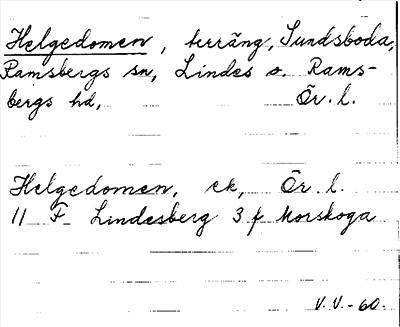 Helgedomen, terräng, Sundsboda,
Ramsbergs sn, Lindes o. Rams-
bergs hd, Ör. l.
Helgedomen, ek, Ör. l.
11 F Lindesberg 3 f Morskoga
V. V. - 60.